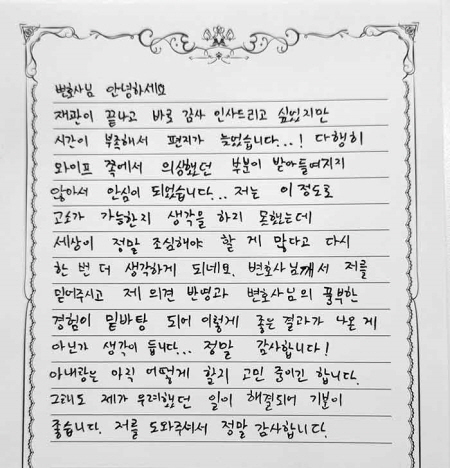 변호사님 안녕하세요
재판이 끝나고 바로 감사 인사드리고 싶었지만
시간이 부족해서 편지가 늦었습니다...! 다행히
와이프 쪽에서 의심했던 부분이 받아들여지지
않아서 안심이 되었습니다... 저는 이 정도로
고소가 가능한지 생각을 하지 못했는데
세상이 정말 조심해야 할 게 많다고 다시
한 번 더 생각하게 되네요. 변호사님께서 저를
믿어주시고 제 의견 반영과 변호사님의 풍부한
경험이 밑바탕 되어 이렇게 좋은 결과가 나온 게
아닌가 생각이 듭니다... 정말 감사합니다!
아내랑은 아직 어떻게 할지 고민 중이긴 합니다.
그래도 제가 우려했던 일이 해결되어 기분이
좋습니다. 저를 도와주셔서 정말 감사합니다.